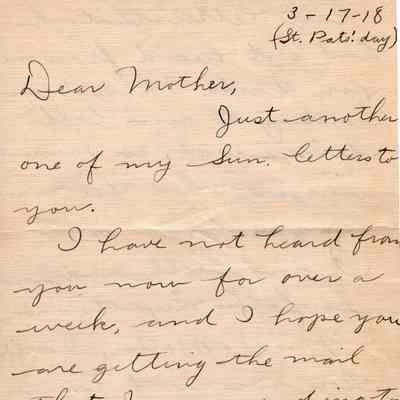 3-17-18
(St. Pats! day)
Dear Mother,
Just another
one of my Sun. letters to
you.
I have not heard from
you now for over a
week, and I hope you
are getting the mail
that I